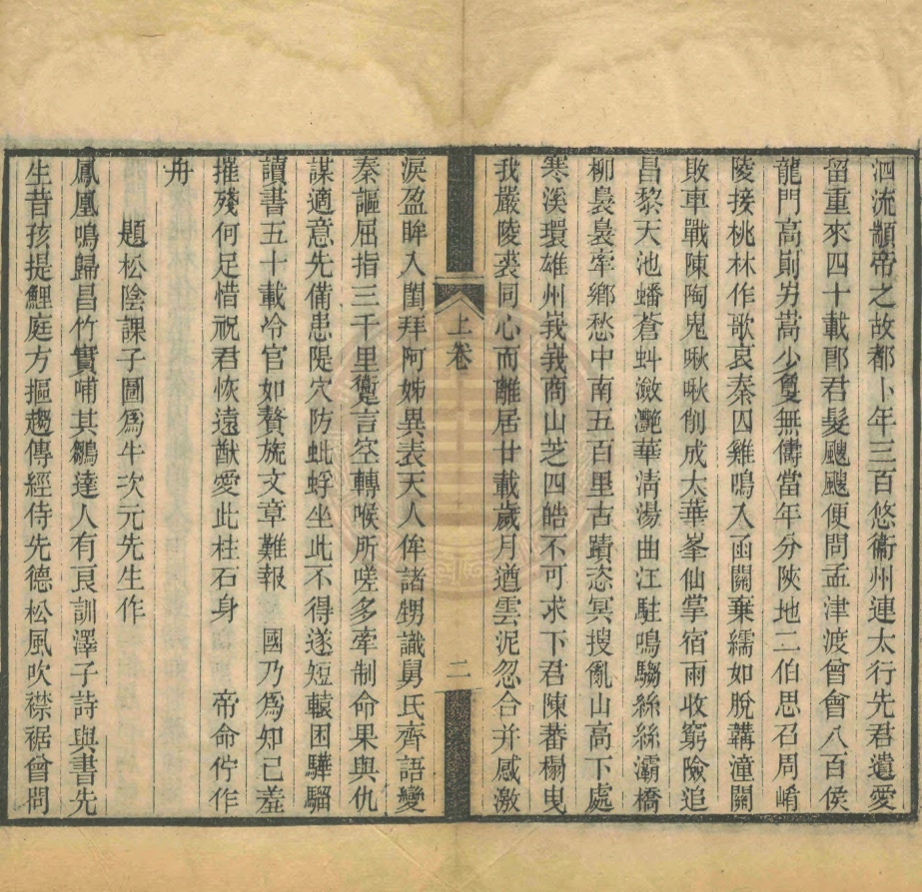 洄流顓帝之故都卜年三百悠衞州連太行先君遺愛
留重來四十載郎君髮颼颼便問孟津渡曾會八百侯
龍門高崱屴嵩少敻無儔當年分陝地二伯思召周崤
陵接桃林作歌哀秦囚雞鳴入函關棄繻如脫韝潼關
敗車戰陳陶鬼啾啾削成太華峯仙掌宿雨收窮險追
昌黎天池蟠蒼虯瀲灩華淸湯曲江駐鳴騶絲絲灞橋
柳裊裊牽鄉愁中南五百里古蹟恣冥搜亂山高下處
寒溪環雄州峩峩商山芝四皓不可求下君陳蕃榻曳
我嚴陵裘同心而離居廿載歲月遒雲泥忽合并感激
上卷
二
淚盈眸入閨拜阿姊異表天人侔諸甥識舅氏齊語變
秦謳屈指三千里躗言空轉喉所嗟多牽制命果與仇
謀適意先備患隄穴防蚍蜉坐此不得遂短轅困驊騮
讀書五十載冷官如贅旒文章難報　國乃爲知己羞
摧殘何足惜祝君恢遠猷愛此柱石身　　帝命佇作
舟
題松陰課子圖爲牛次元先生作
鳳凰鳴歸昌竹實哺其鶵達人有良訓澤子詩與書先
生昔孩提鯉庭方摳趨傳經侍先德松風吹襟裾曾問